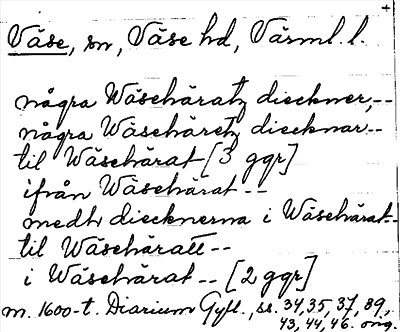 Väse, sn, Väse hd, Värml. l.
några Wäsehäratz dieekner,--
några Wäsehäretz dieeknar--
til Wäsehärat [3 ggr]
ifrån Wäsehärat --
medh dieeknerna i Wäsehärat--
til Wäsehäratt--
i Wäsehärat -- [2 ggr]
m. 1600-t. Diarium Gyll., ss. 34, 35, 37, 89,
43, 44, 46. orig.